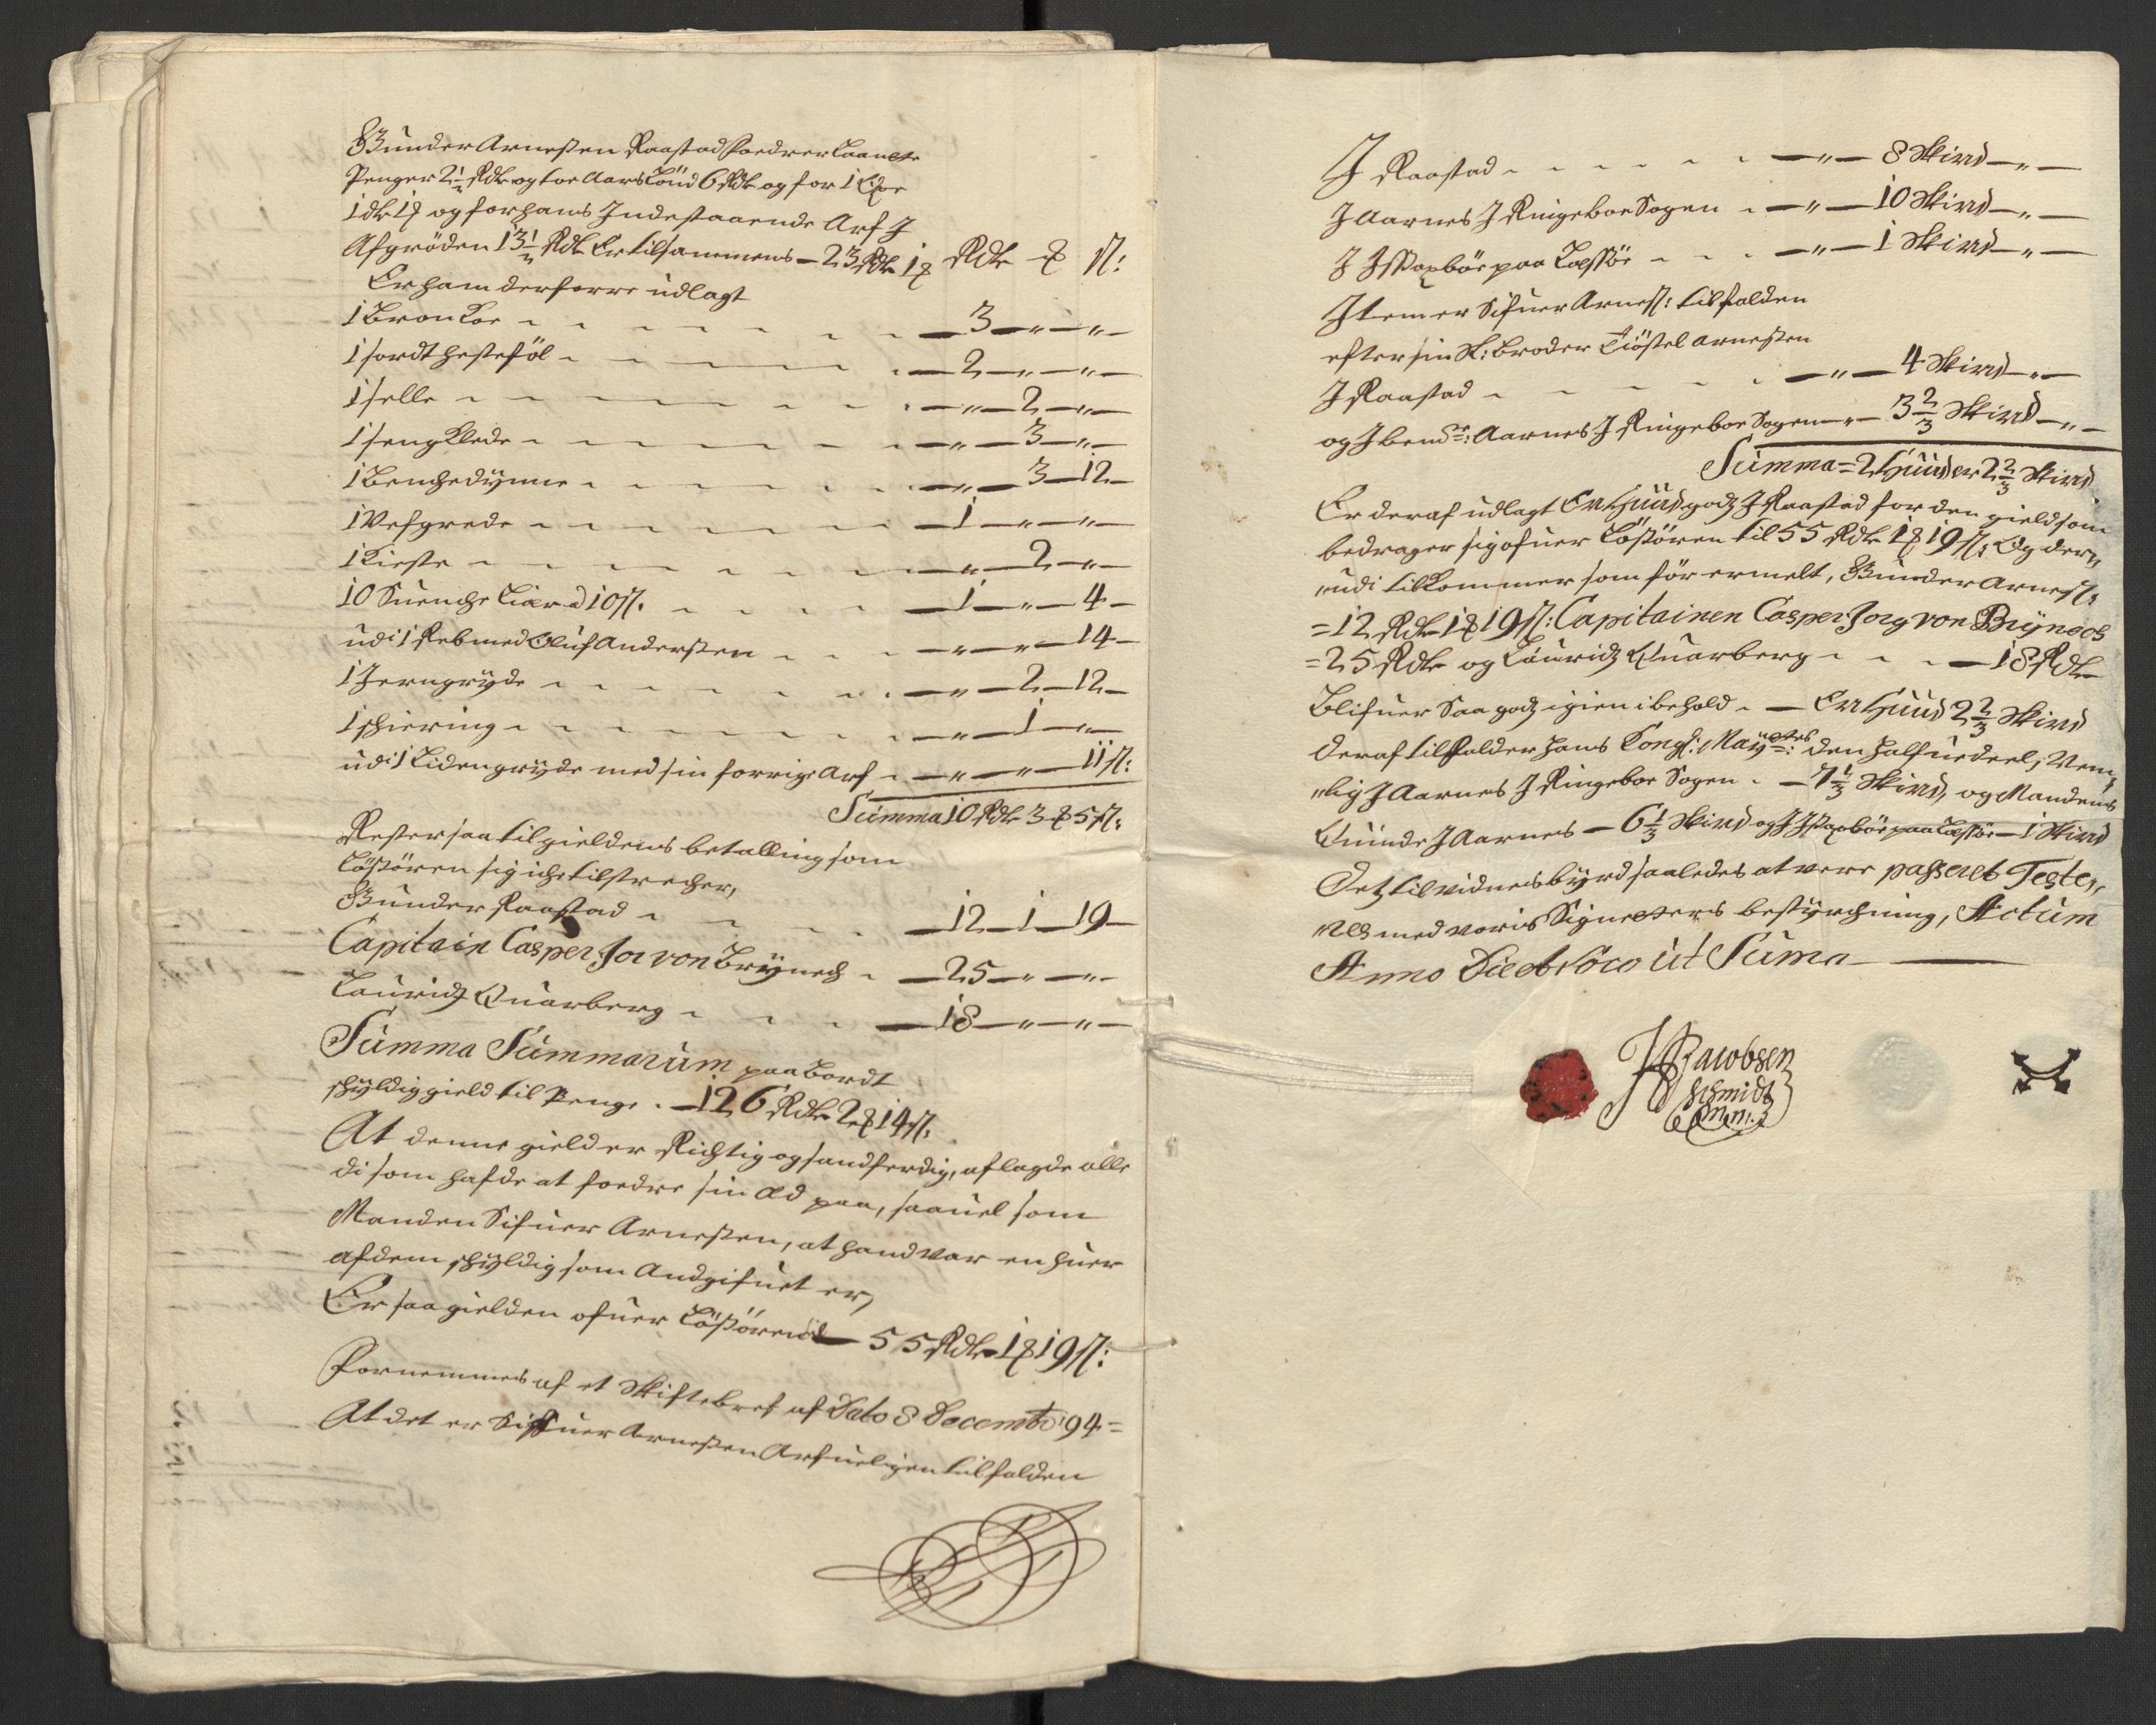 Gunder Arnesen Raastad fordrer Laante
Penger 2½ Rdr og for Aars Lönd 6 Rdr og for 1 Koe
1 dr 1 ꝝ og for hans Indestaaende Arf I
Afgröden 13½ Rdr Er tilsammens – 23 Rdr 1 ꝝ Rdr ꝝ ß:
Er ham derforre udlagt
1 Bron Koe – 3 – „ – „ –
1 sordt hesteföl – 2 – „ – „ –
1 selle – „ – 2 – „ –
1 seng Klede – „ – 3 – „ –
1 Benchedynne – „ – 3 – 12 –
1 Vefgrede – 1 – „ – „ –
1 Kieste – „ – 2 – „ –
10 Suenche Liar à 10 ß. – 1 – „ – 4 –
udi 1 Reb med Oluf Andersen – „ – „ – 14 –
1 Jerngryde – „ – 2 – 12 –
1 schiering – „ – 1 – „ –
udi 1 Lidengryde med sin forrige Arf – „ – „ – 11 ß:
Summa 10 Rdr 3 ꝝ 5 ß:
Rester saa til gieldens betalling som
Lösören sig iche tilstrecher,
Gunder Raastad – 12 – 1 – 19 –
Capitain Casper Jor von Brÿnech – 25 – „ – „ –
Lauridz Quarberg – 18 – „ – „ –
Summa Summarum paa bordt
schyldig gield til Penge – 126 Rdr 2 ꝝ 14 ß.
At denne gield er Richtig og sandferdig, aflagde alle
di som hafde at fordre sin æd paa, saauel som
Manden Sifuer Arnesen, at hand var en huer
af dem schyldig som Andgifuet er,
Er saa gielden ofuer Lösören – 55 Rdr 1 ꝝ 19 ß:
Fornemmes af et Skiftebref af Dato 8 Decembr 94 =
At det er Sifuer Arnesen Arfueligen tilfalden
I Raastad – „ – 8 Skind – „ –
I Aarnes I Ringeboe Sogen – „ – 10 Skind – „ –
I paa – „ – 1 Skind – „ –
Item er Sifuer Arnesß: tilfalden
efter sin S: broder Kiöstel Arnesen
I Raastad – „ – 4 Skind – „ –
og I bemte: Aarnes I Ringeboe Sogen – „ – 3⅔ Skind – „ –
Summa = 2 Huuder 2⅔ Skind
Er deraf udlagt En Huud godz I Raastad for den gield som
bedrager sig ofuer Lösören til 55 Rdr 1 ꝝ 19 ß: Og der„
„udi tilkommer som för ermelt, Gunder Arnesß:
= 12 Rdr 1 ꝝ 19 ß: Capitainen Casper Jorg von Brÿnech
= 25 Rdr og Lauridz Quarberg – 18 Rdr
Blifuer Saa godz igien i behold – En Huud 2⅔ Skind
deraf tilfalder hans Kongl: Mayttes: den halfue deel, Nem„
„lig I Aarnes I Ringeboe Sogen – 7⅓ Skind, og Mandens
Quinde I Aarnes – 6⅓ Skind og I paa – 1 Skind
Detz til vidnesbyrd saaledes at vere passeret Teste„
„res med voris Signeters bestyrchning, Actum
Anno Die et Loco ut Supra
Jacobsen
Schmidt